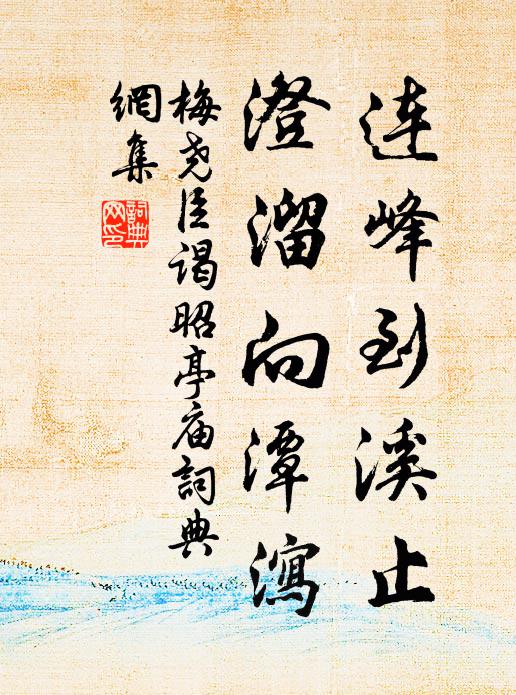 连峰到溪止
澄溜向潭瀉
梅尧臣谒昭亭庙詞典
網集
詞典
网印